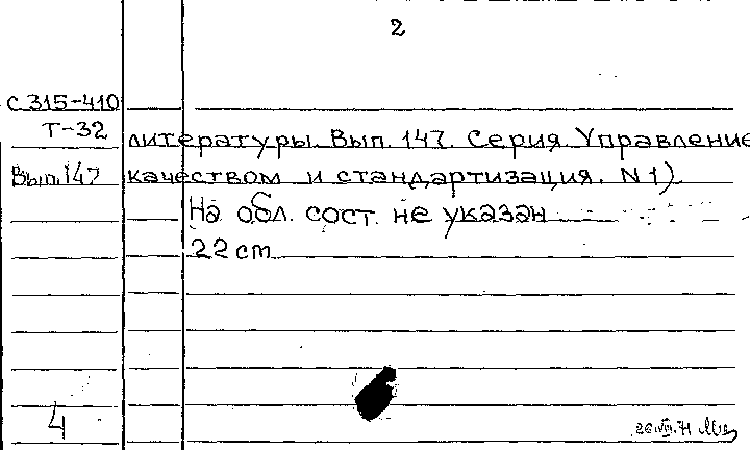 2
С315-410
Т-32
Вып. 147
литературы. Вып. 147. Серия Управление
качеством и стандартизация. N 1)
На обл. сост. не указан
22 cm
4
26.VIII.71